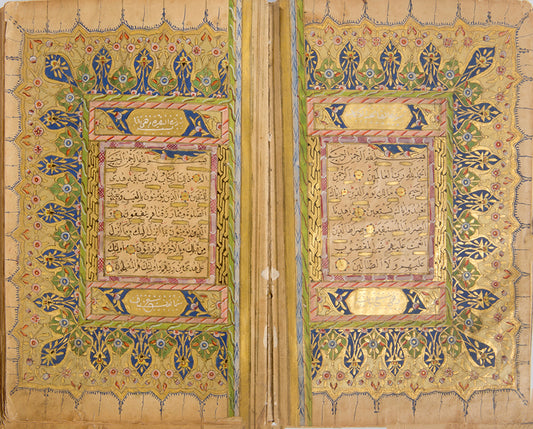 بسم الله الرحمن الرحيم
الحمد لله رب العالمين
الرحمن الرحيم مالك يوم الدين
اياك نعبد واياك نستعين اهدنا
الصراط المستقيم صراط الذين
انعمت عليهم غير المغضوب
عليهم ولا الضالين
سورة البقرة
بسم الله الرحمن الرحيم
الم ذلك الكتاب لا ريب فيه هدى
للمتقين الذين يؤمنون بالغيب ويقيمون
الصلوة ومما رزقناهم ينفقون
والذين يؤمنون بما انزل اليك وما انزل
من قبلك وبالاخرة هم يوقنون اولئك
على هدى من ربهم واولئك هم المفلحون